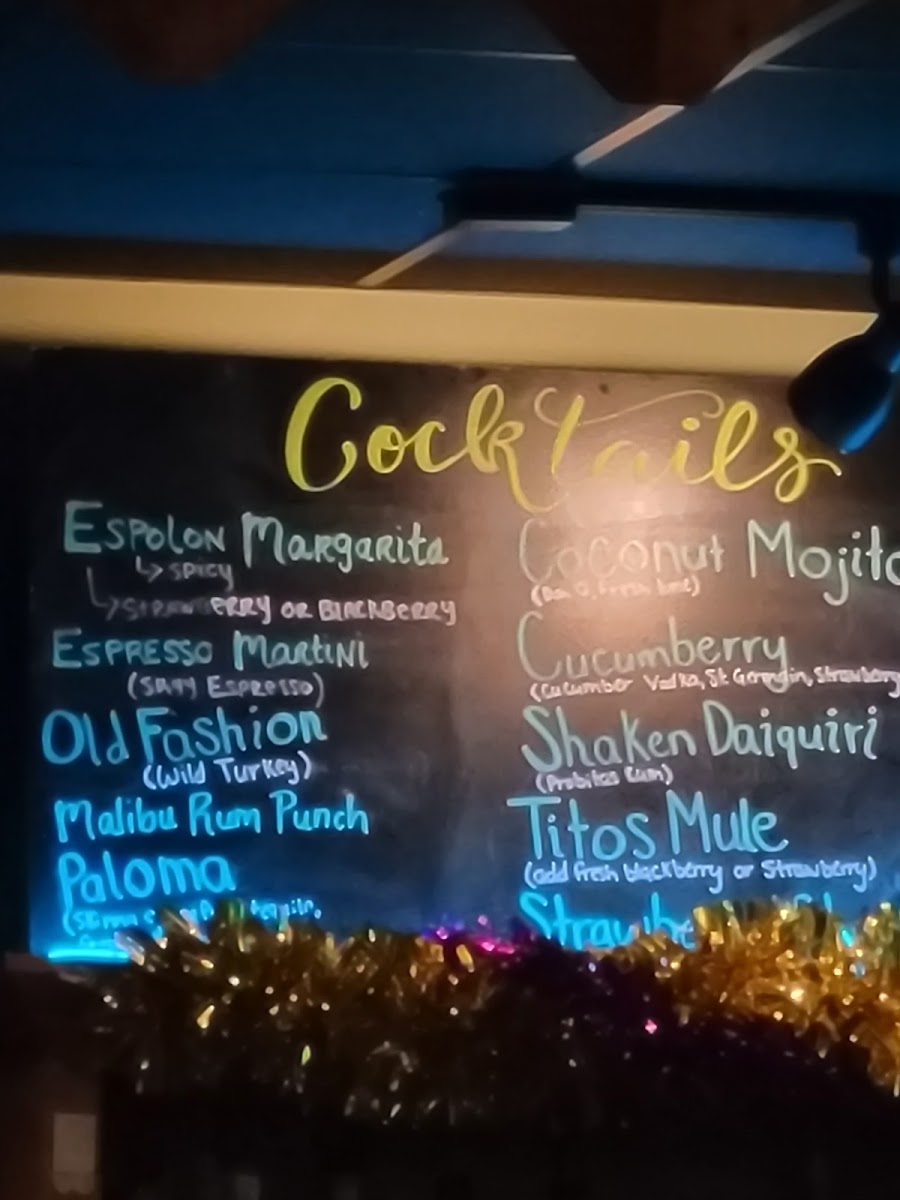 Cocktails
Espolon Margarita
↳ Spicy
↳ Strawberry or Blackberry
Espresso Martini
(SAYY Espresso)
Old Fashion
(Wild Turkey)
Malibu Rum Punch
Paloma
Coconut Mojito
(Fresh
Cucumberry
(Cucumber Vodka, St. Germain, Strawberry
Shaken Daiquiri
(Probitas Rum)
Titos Mule
(add fresh blackberry or Strawberry)